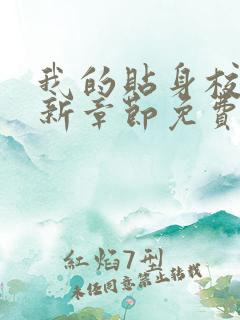 我的貼身校
新章節免費
紅焰7型
未经同意禁止转载